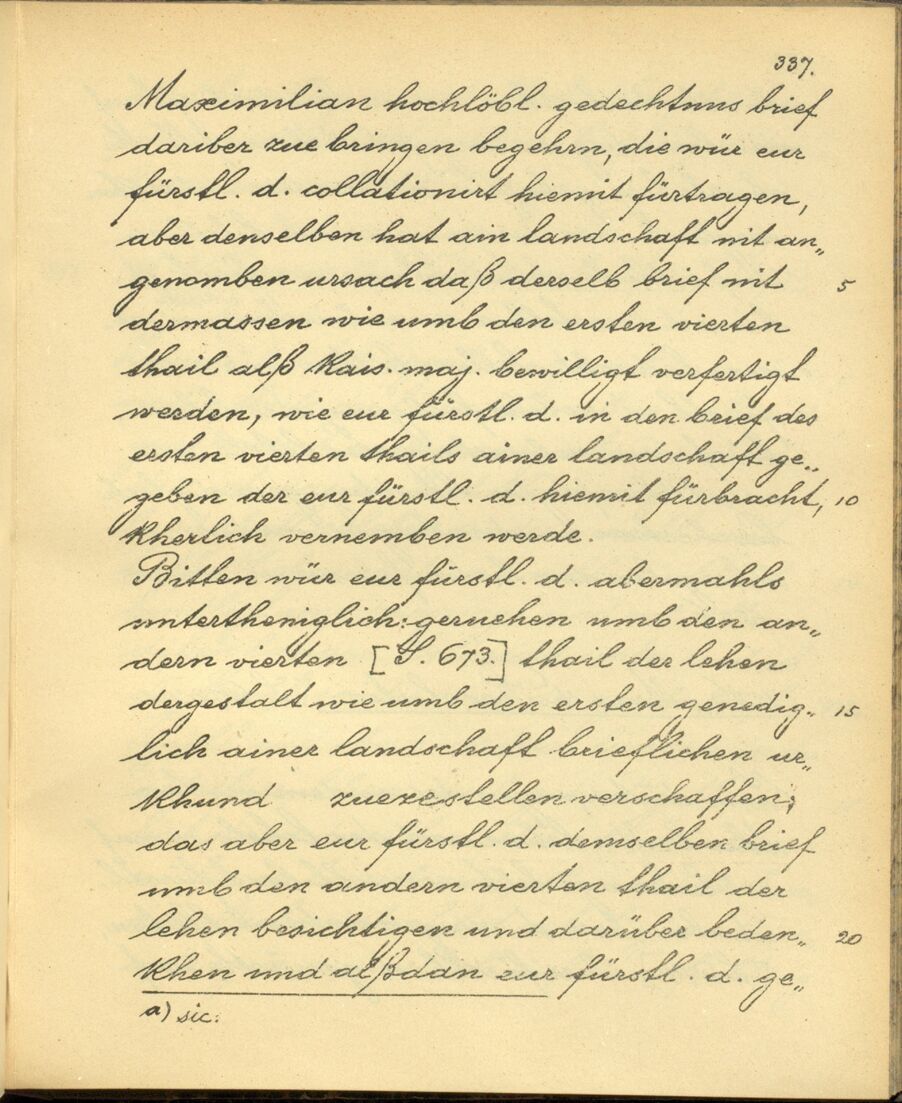 337.
Maximilian hochlöbl. gedechtnus brief
dariber zue bringen begehrn, die wür eur
fürstl. d. collationirt hiemit fürtragen,
aber denselben hat ain landschaft nit an„
genomben ursach daß derselb brief nit 5
dermassen wie umb den ersten vierten
thail alß Kais. maj. bewilligt verfertigt
werden, wie eur fürstl. d. in den brief des
ersten vierten thails ainer landschaft ge„
geben der eur fürstl. d. hiemit fürbracht, 10
Kherlich vernemben werde.
Bitten wür eur fürstl. d. abermahls
untertheniglich: geruehen umb den an„
dern vierten [S. 673.] thail der lehen
dergestalt wie umb den ersten genedig„ 15
lich ainer landschaft brieflichen ur„
Khund zuezestellen verschaffen;
das aber eur fürstl. d. demselben brief
umb den andern vierten thail der
lehen besichtigen und darüber beden„ 20
Khen und alßdan eur fürstl. d. ge„
a) sic.